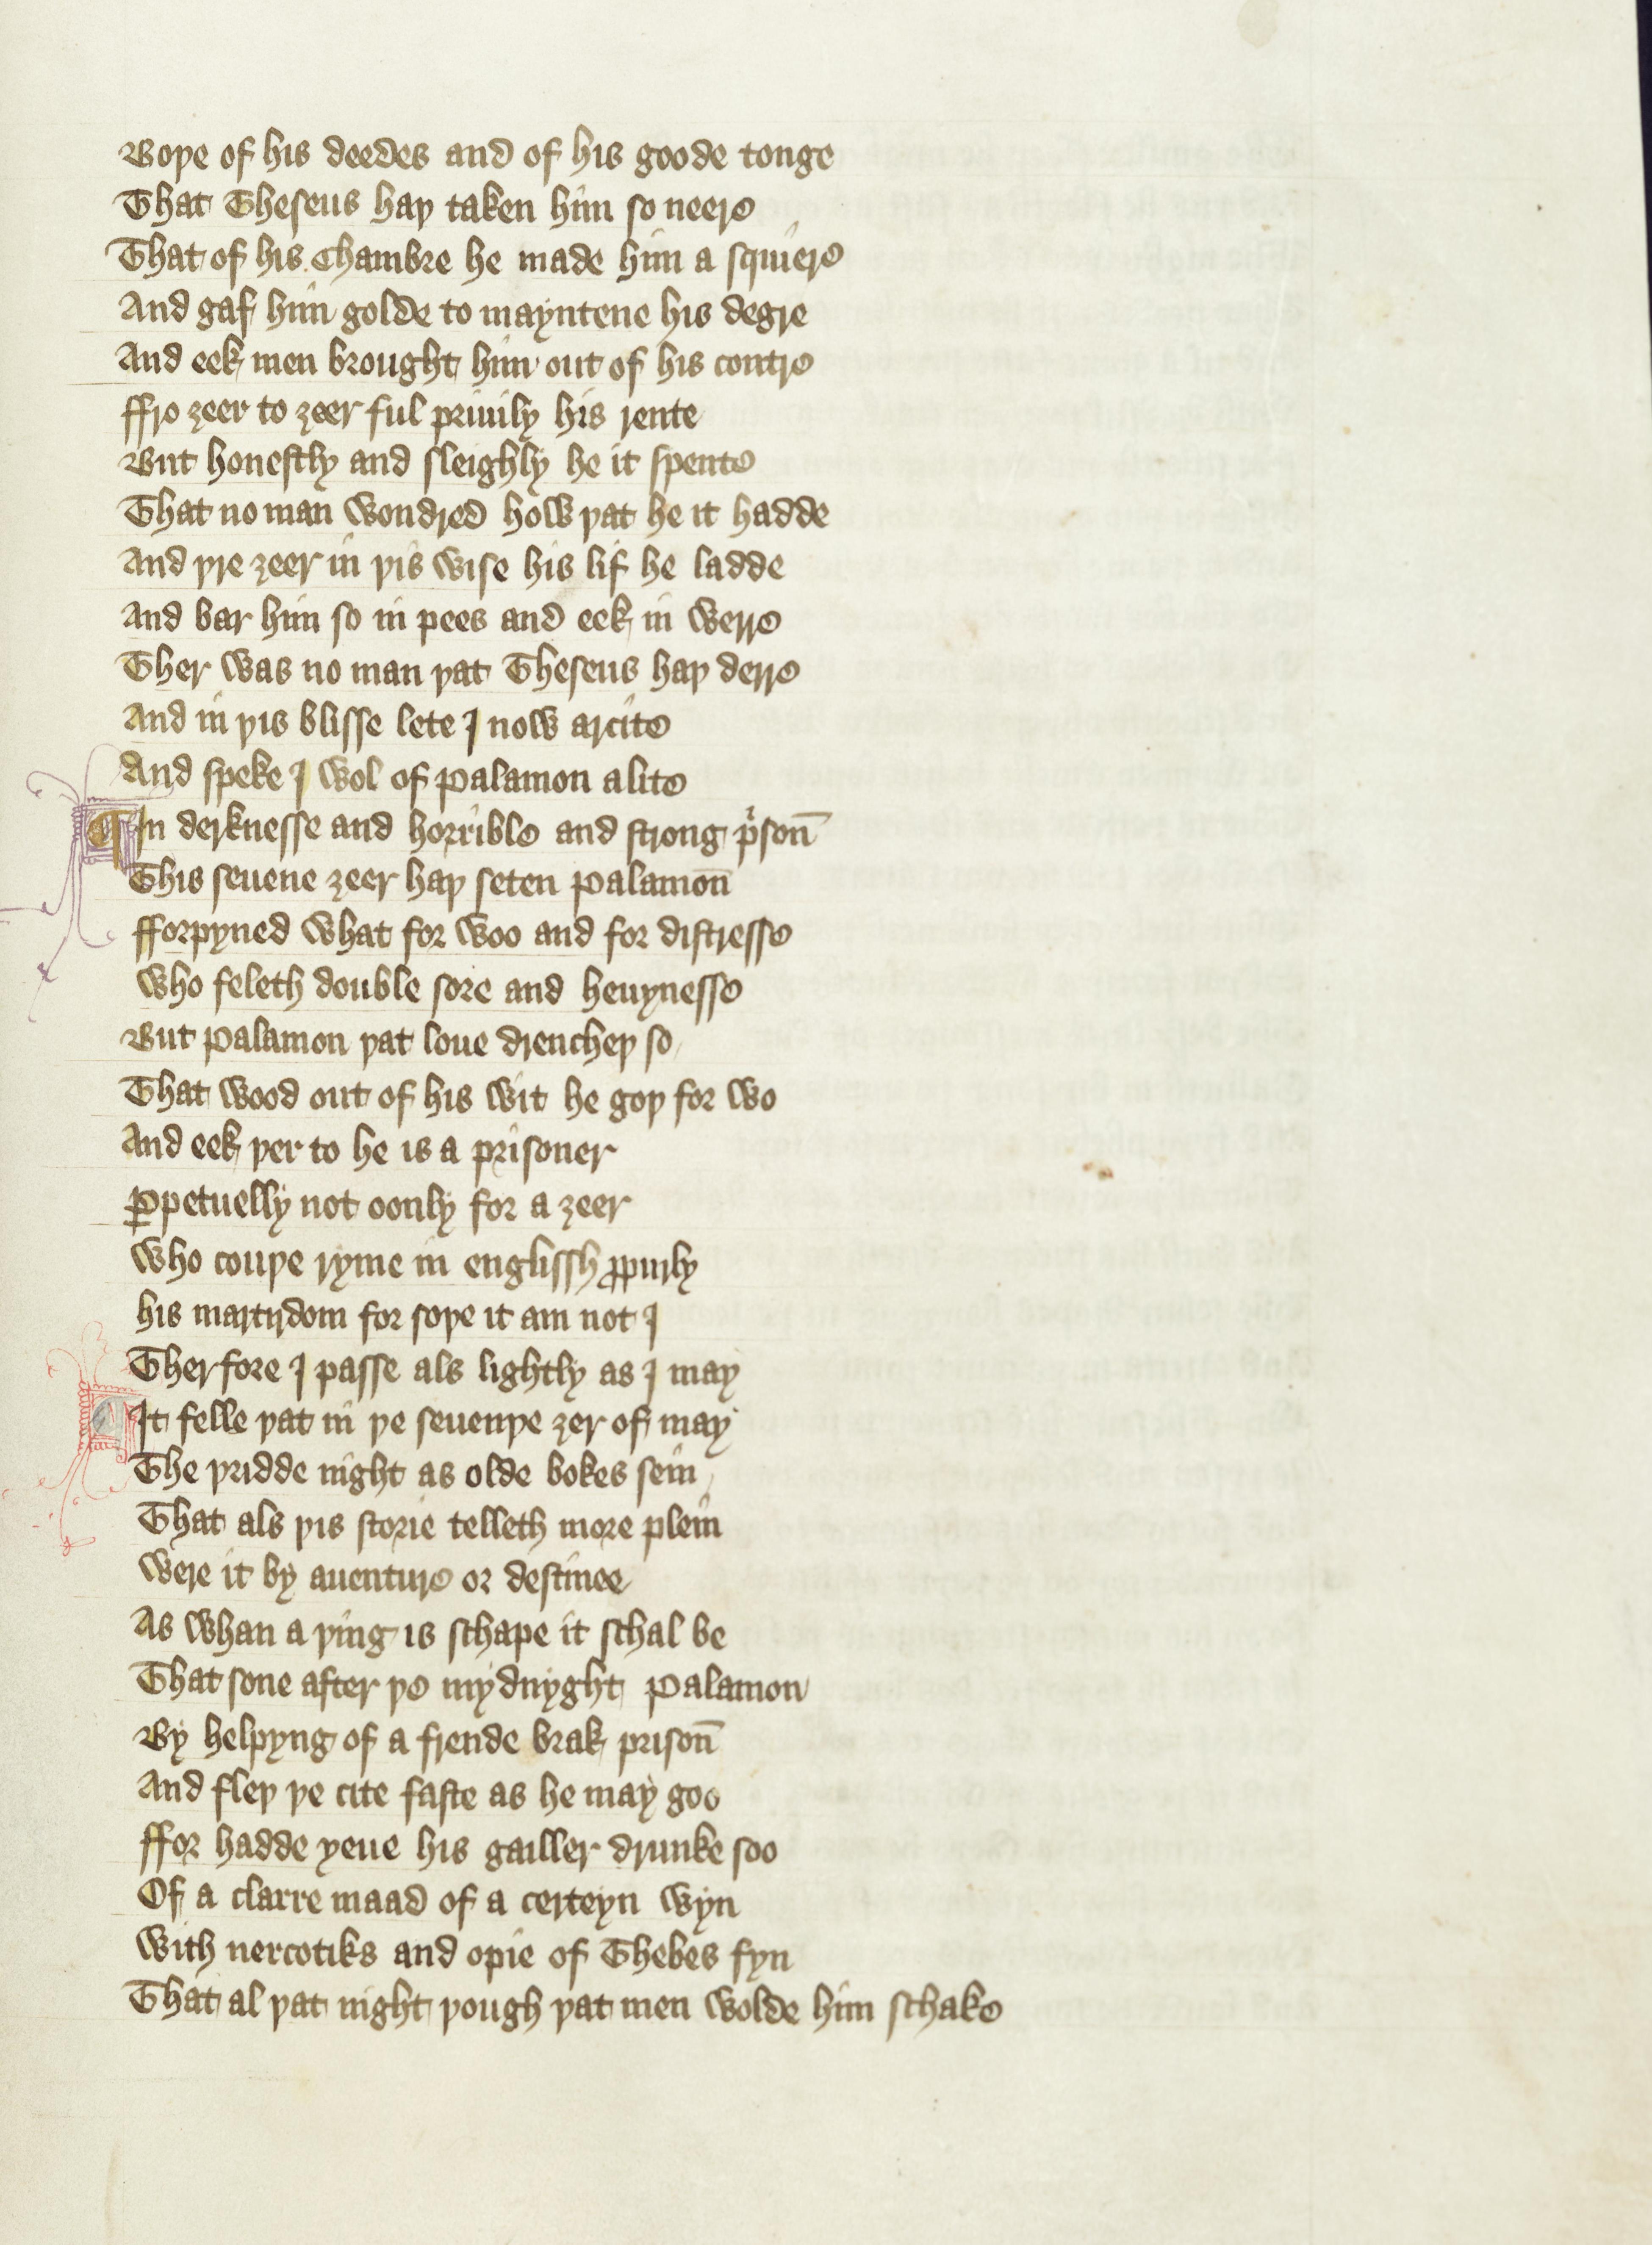 Boþe of his deedes and of his goode tonge
That Theseus haþ taken him so neere
That of his Chambre he made him a squiere
And gaf him golde to mayntene his degre
And eek men brought him out of his contre
ffro ȝeer to ȝeer ful priuily his rente
But honestly and sleighly he it spente
That no man wondred how þat he it hadde
And þre ȝeer in þis wise his lif he ladde
And bar him so in pees and eek in werre
Ther was no man þat Theseus haþ derre
And in þis blisse lete I now arcite
And speke I wol of Palamon alite
¶ In derknesse and horrible and strong p'son̄
This seuene ȝeer haþ seten Palamon̄
fforpyned what for woo and for distresse
Who feleth double sore and heuynesse
But Palamon þat loue drencheþ so
That wood out of his wit he goþ for wo
And eek þer to he is a prisoner
ꝑpetuelly not oonly for a ȝeer
Who couþe ryme in englissh ꝓpurly
his martirdom for soþe it am not I
Therfore I passe als lightly as I may
¶ It felle þat in þe seuenþe ȝer of may
The þridde night as olde bokes sein
That als þis storie telleth more plein
Were it by auenture or destinee
As whan a þing is schape it schal be
That sone after þe mydnyght Palamon
By helpyng of a frende brak prison̄
And fleþ þe cite faste as he may goo
ffor hadde yeue his gailler drunke soo
Of a clarre maad of a certeyn wyn
With nercotiks and opie of Thebes fyn
That al þat night þough þat men wolde him schake